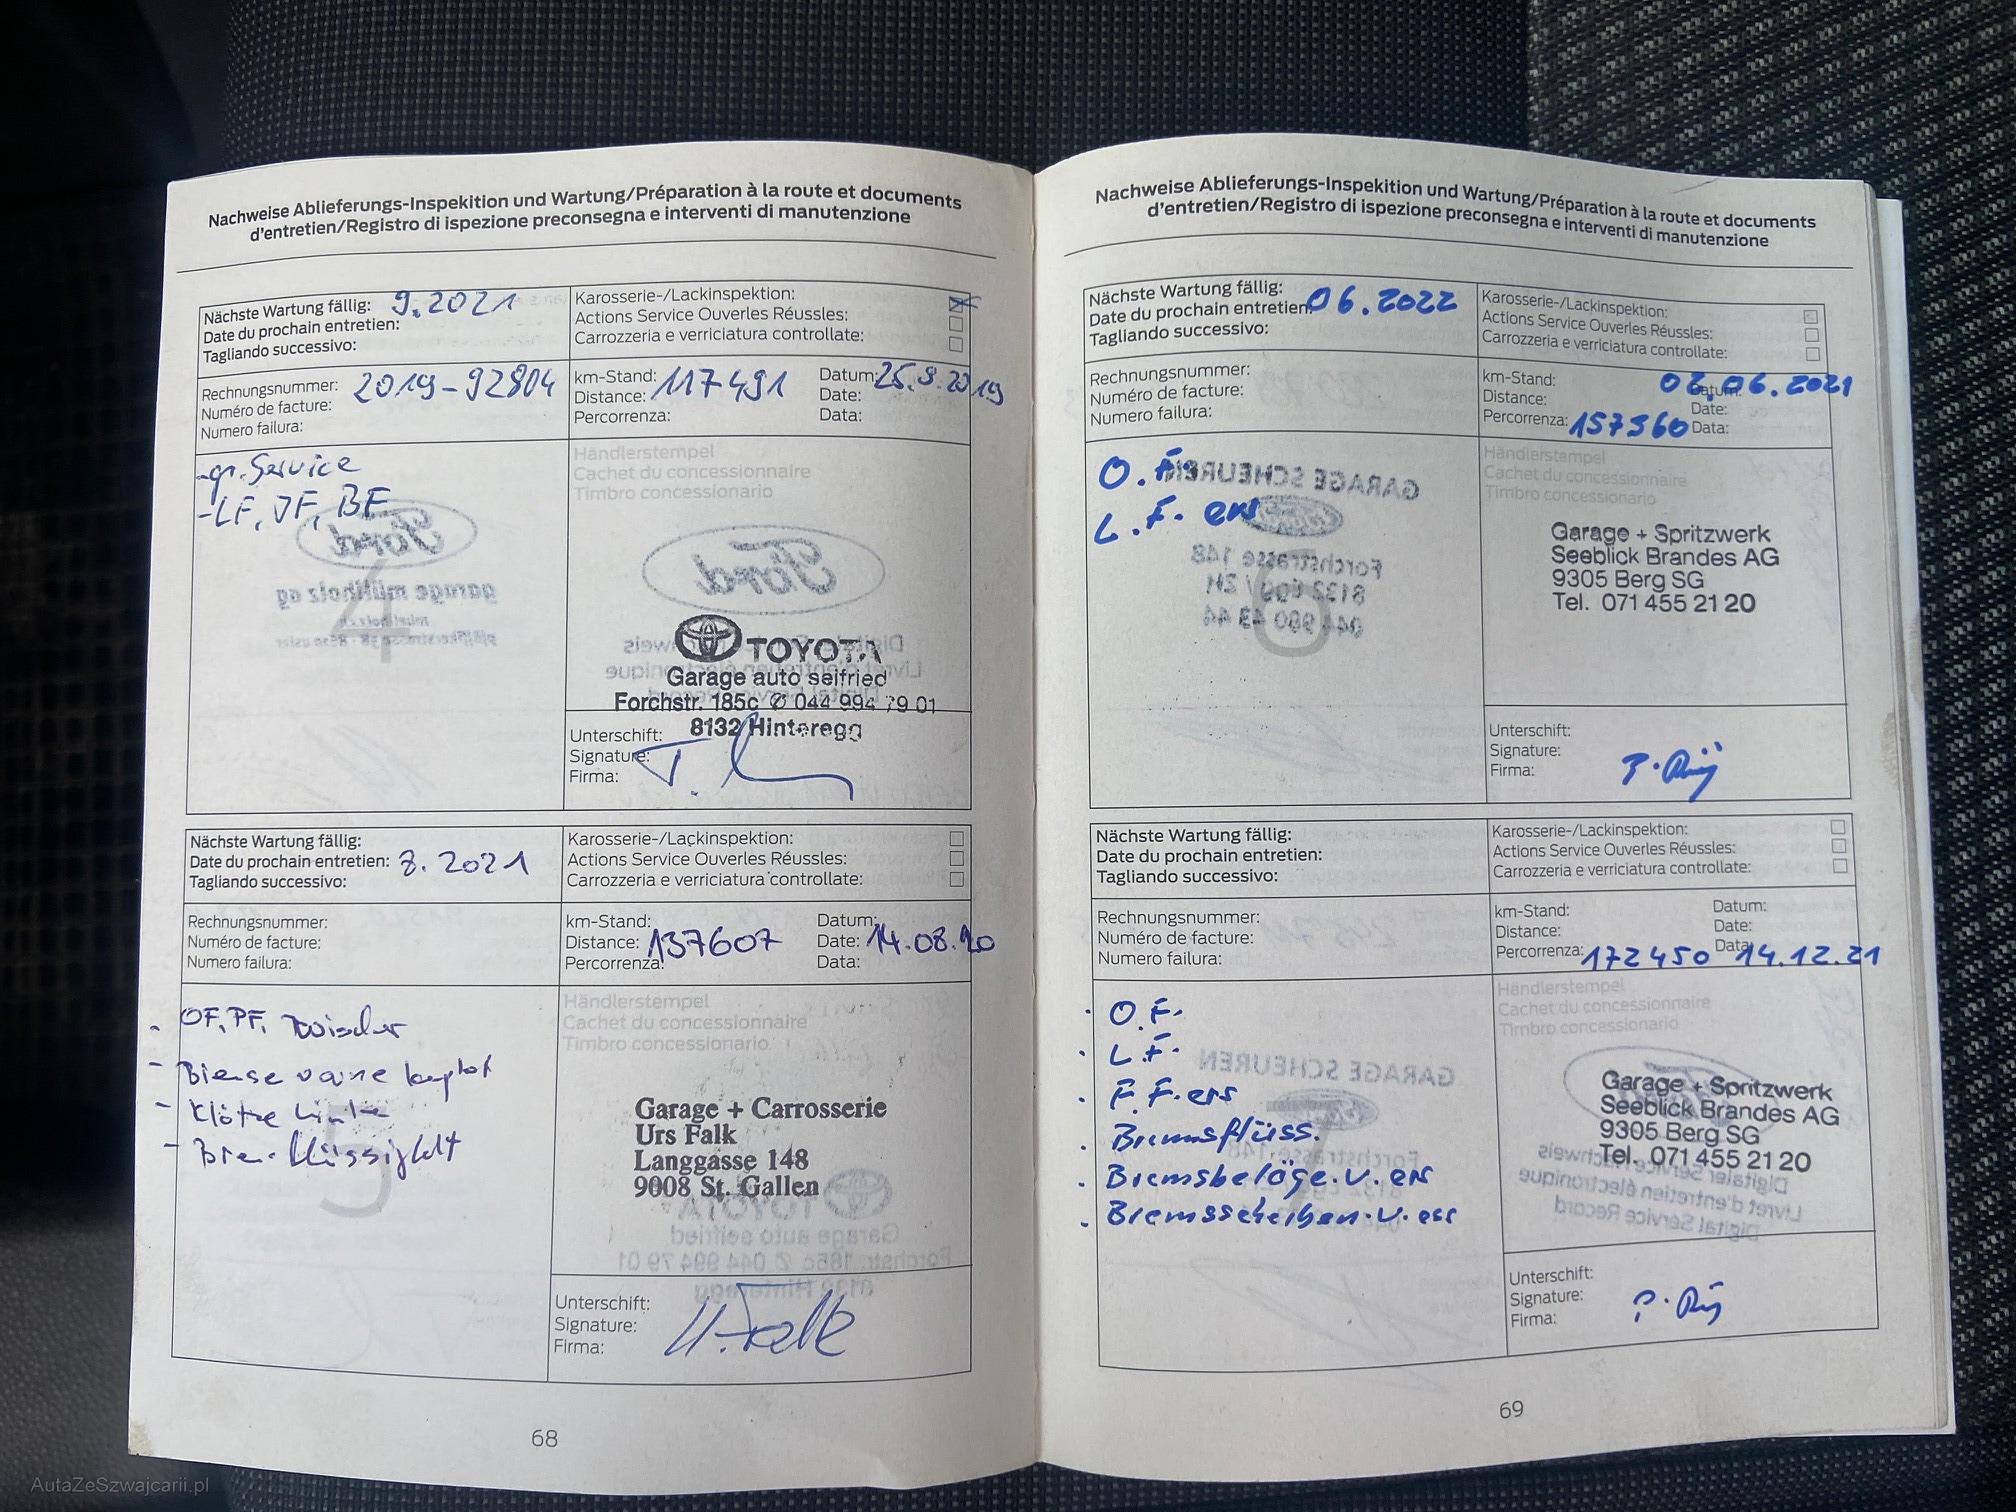 Nachweise Ablieferungs-Inspekition und Wartung/Préparation à la route et documents
d'entretien/Registro di ispezione preconsegna e interventi di manutenzione
Nächste Wartung fällig: 9.2021
Date du prochain entretien:
Tagliando successivo:
Karosserie-/Lackinspektion:
Actions Service Ouverles Réussles:
Carrozzeria e verriciatura controllate:
Rechnungsnummer: 2019-92804
Numéro de facture:
Numero failura:
km-Stand: 117491 Datum: 25.9.2019
Distance: Date:
Percorrenza: Data:
-gr. Service
-LF, JF, BF
Händlerstempel
Cachet du concessionnaire
Timbro concessionario
TOYOTA
Garage auto seifried
Forchstr. 185c ✆ 044 994 79 01
8132 Hinteregg
Unterschift:
Signature:
Firma:
Nächste Wartung fällig:
Date du prochain entretien: 8.2021
Tagliando successivo:
Karosserie-/Lackinspektion:
Actions Service Ouverles Réussles:
Carrozzeria e verriciatura controllate:
Rechnungsnummer:
Numéro de facture:
Numero failura:
km-Stand: Datum:
Distance: 137607 Date: 14.08.20
Percorrenza: Data:
- OF, PF, Wischer
- Bremse vorne
- Klötze
-
Händlerstempel
Cachet du concessionnaire
Timbro concessionario
Garage + Carrosserie
Urs Falk
Langgasse 148
9008 St. Gallen
Unterschift:
Signature: U. Falk
Firma:
68
Nachweise Ablieferungs-Inspekition und Wartung/Préparation à la route et documents
d'entretien/Registro di ispezione preconsegna e interventi di manutenzione
Nächste Wartung fällig:
Date du prochain entretien: 06.2022
Tagliando successivo:
Karosserie-/Lackinspektion:
Actions Service Ouverles Réussles:
Carrozzeria e verriciatura controllate:
Rechnungsnummer:
Numéro de facture:
Numero failura:
km-Stand: Datum: 02.06.2021
Distance: Date:
Percorrenza: 157360 Data:
O.F.
L.F. ers
Händlerstempel
Cachet du concessionnaire
Timbro concessionario
Garage + Spritzwerk
Seeblick Brandes AG
9305 Berg SG
Tel. 071 455 21 20
Unterschift:
Signature:
Firma:
Nächste Wartung fällig:
Date du prochain entretien:
Tagliando successivo:
Karosserie-/Lackinspektion:
Actions Service Ouverles Réussles:
Carrozzeria e verriciatura controllate:
Rechnungsnummer:
Numéro de facture:
Numero failura:
km-Stand: Datum:
Distance: Date:
Percorrenza: 172450 Data: 14.12.21
· O.F.
· L.F.
· F.F. ers
· Bremsflüss.
· Bremsbeläge. v. ers
· Bremsscheiben. v. ers
Händlerstempel
Cachet du concessionnaire
Timbro concessionario
Garage + Spritzwerk
Seeblick Brandes AG
9305 Berg SG
Tel. 071 455 21 20
Unterschift:
Signature:
Firma:
69
AutaZeSzwajcarii.pl